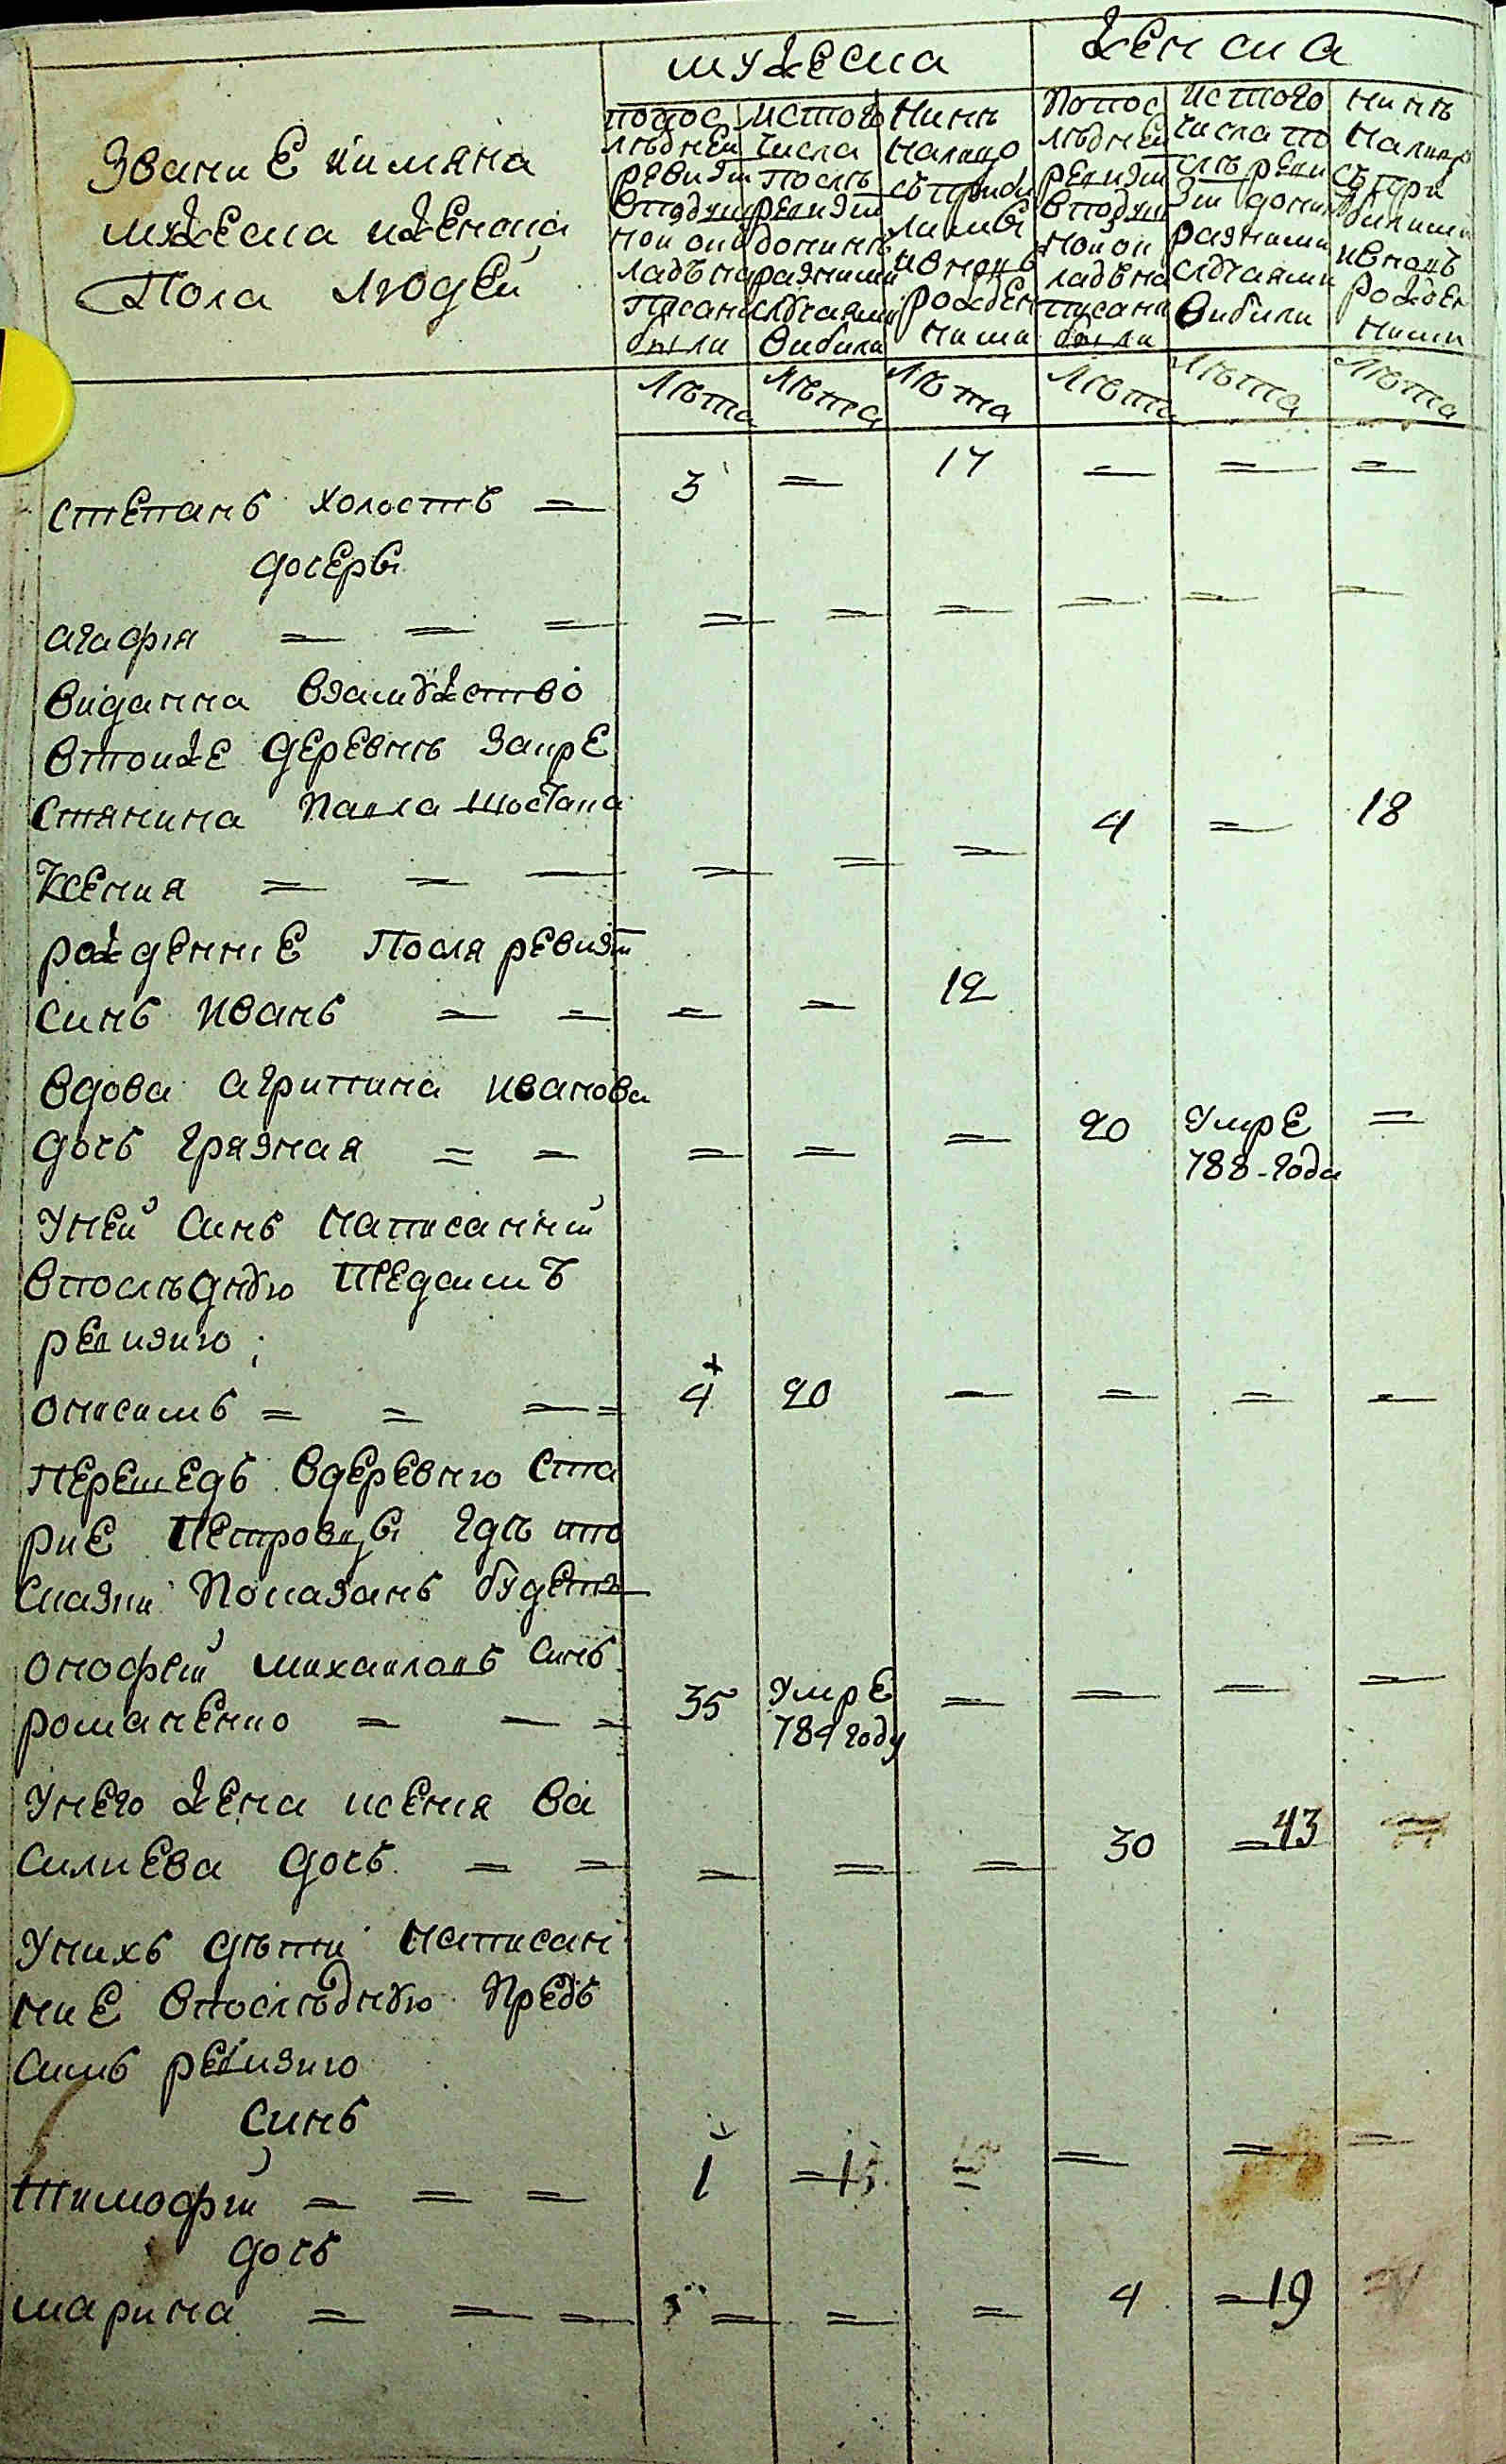 мужеска женска
Звание и имяна
мужеска и женска
Пола людей
попос
лѣдней
ревизии
вподуш
ной ок
ладъ на
писани
были
истого
числа
послѣ
ревизии
донинѣ
разними
случаями
вибили
нинѣ
налицо
съ приби
лими
и вновь
рожден
ними
попос
лѣдней
ревизии
вподуш
ной ок
ладъ на
писани
были
истого
числа по
слѣ реви
зии донинѣ
разними
случаями
вибили
нинѣ
налицо
съ при
билими
и вновь
рожден
ними
лѣта лѣта лѣта лѣта лѣта лѣта
степанъ холостъ = 3 = 17 = = =
дочеры
агафия = = = = = = = = =
виданна взамужство
втойже деревнѣ закре
стянина Павла шостака
Ксения = = = = = = 4 = 18
рожденние После ревизии
синъ Иванъ = = = = 12
вдова агрипина иванова
дочь грязная = = = = = 20 Умре 788-года =
Уней синъ написанний
впослѣднюю предсимъ
ревизию;
онисимъ = = = 4 20 = = = =
перешедъ вдеревню Ста
рие Петровцы гдѣ ипо
сказки показанъ будетъ
онофрей михаиловъ синъ
романенко = = = 35 Умре 784 году = = = =
Унего жена ксения ва
силиева дочь = = = = = 30 = 43
Унихъ дѣти написан
ние впослѣднюю предъ
симъ ревизию
синъ
тимофей = = = 1 = 15 = = = =
дочь
марина = = = = = = 4 = 19